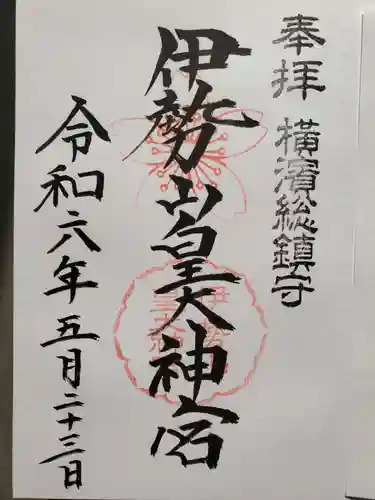 奉拝
横濱総鎮守
伊勢山皇大神宮
令和六年五月二十三日